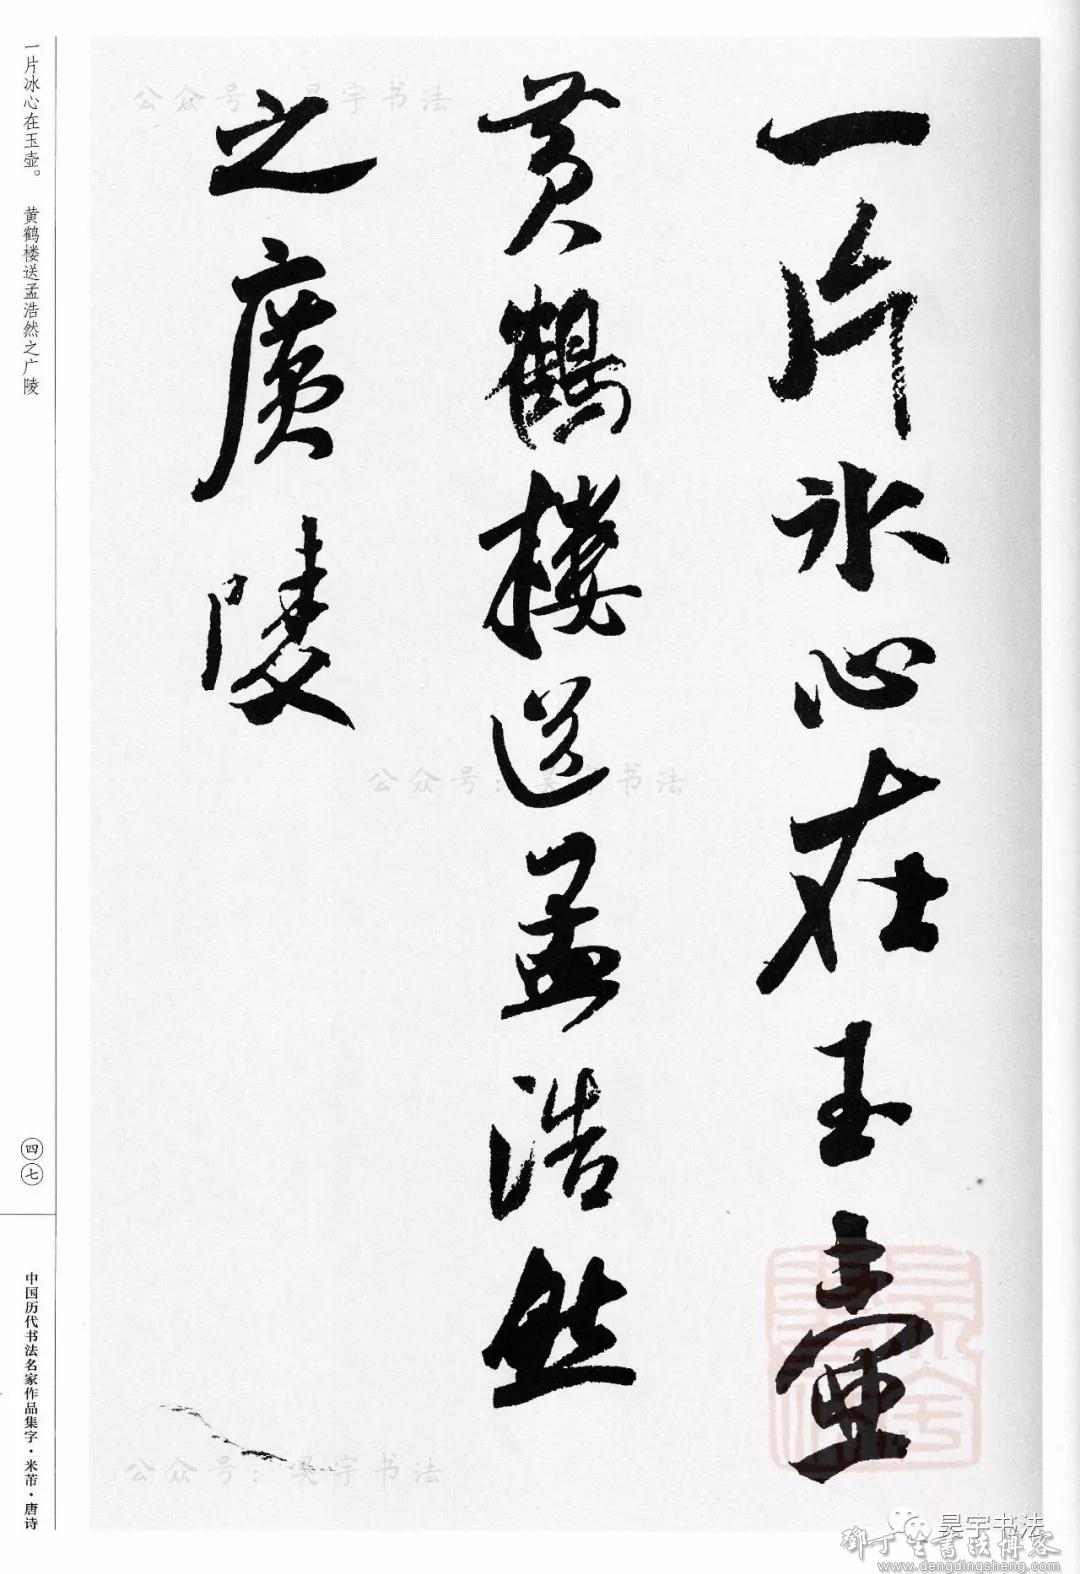 一片冰心在玉壶
黄鹤樓送孟浩然
之廣陵
一片冰心在玉壶。 黄鹤楼送孟浩然之广陵
四七
中国历代书法名家作品集字·米芾·唐诗
公众号：昊宇书法
公众号：昊宇书法
公众号：昊宇书法
昊宇书法
鄧丁生書法博客
www.dengdingsheng.com